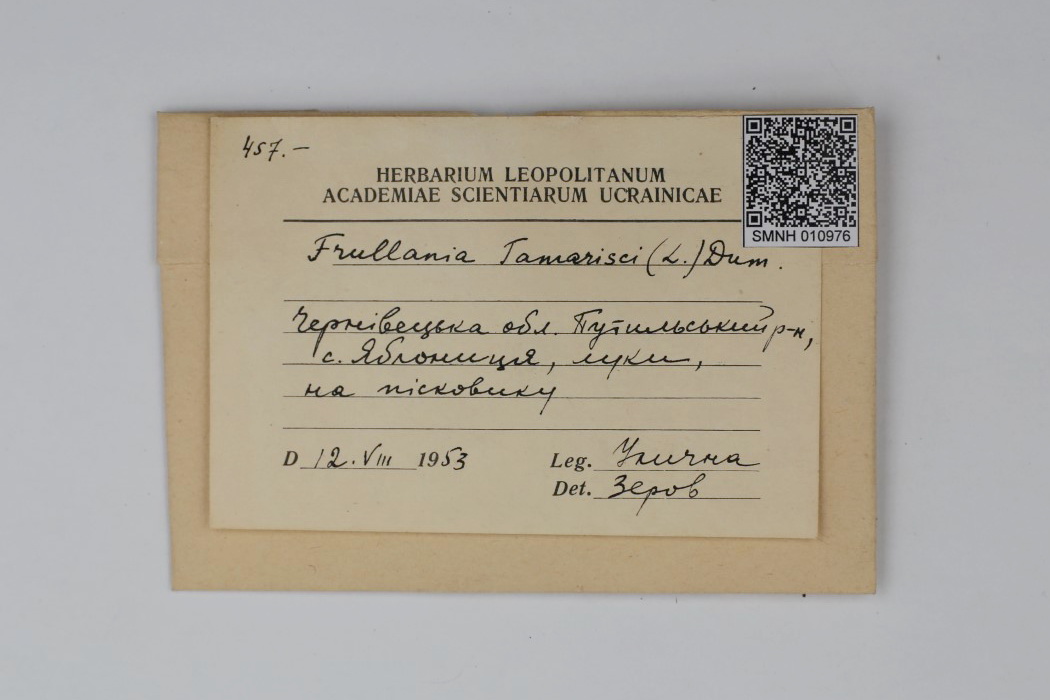 457.–
HERBARIUM LEOPOLITANUM
ACADEMIAE SCIENTIARUM UCRAINICAE
SMNH 010976
Frullania Tamarisci (L.) Dum.
Чернівецька обл. Путильський р-н,
с. Яблониця, луки,
на пісковику
D 12.VIII 1953
Leg. Улична
Det. Зеров